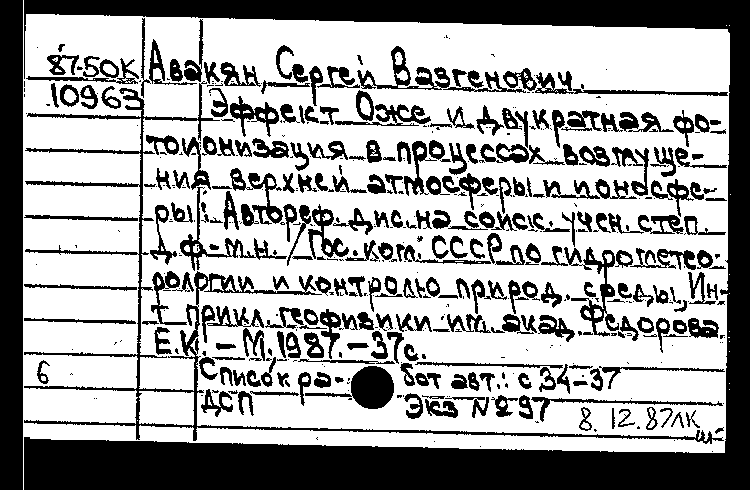 87-50К Авакян, Сергей Вазгенович.
10963 Эффект Оже и двукратная фо-
тоионизация в процессах возмуще-
ния верхней атмосферы и ионосфе-
ры: Автореф. дис. на соиск. учен. степ.
д.ф.-м.н. / Гос. ком. СССР по гидрометео-
рологии и контролю природ. среды, Ин-
т прикл. геофизики им. акад. Федорова
Е.К. - М. 1987. - 37с.
6 Список ра- бот авт.: с 34-37
ДСП Экз № 297 8.12.87ЛК
ш-